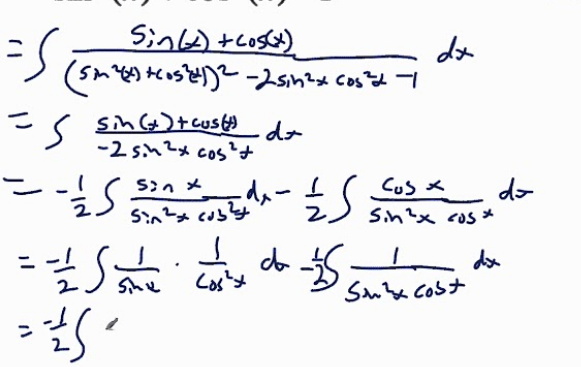 = ∫ (sin(x) + cos(x)) / ((sin²(x) + cos²(x))² - 2sin²x cos²x - 1) dx
= ∫ (sin(x) + cos(x)) / (-2 sin²x cos²x) dx
= -1/2 ∫ sin x / (sin²x cos²x) dx - 1/2 ∫ cos x / (sin²x cos x) dx
= -1/2 ∫ 1/sin x · 1/cos²x dx - 1/2 ∫ 1 / (sin²x cos x) dx
= -1/2 ∫